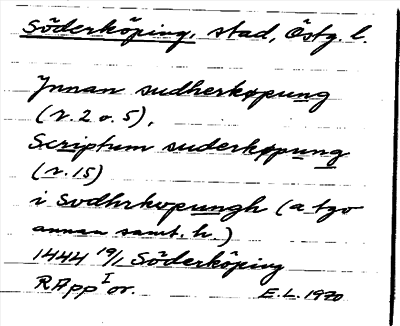 Söderköping, stad, Östg. l.
Jnnan sudherkøpung
(r. 2 o. 5),
Scriptum suderkøpung
(r. 15)
i Sodhrkopungh (a tgo
annan samt. h.)
1444 19/1 Söderköping
RApp I or.
E.L. 1920